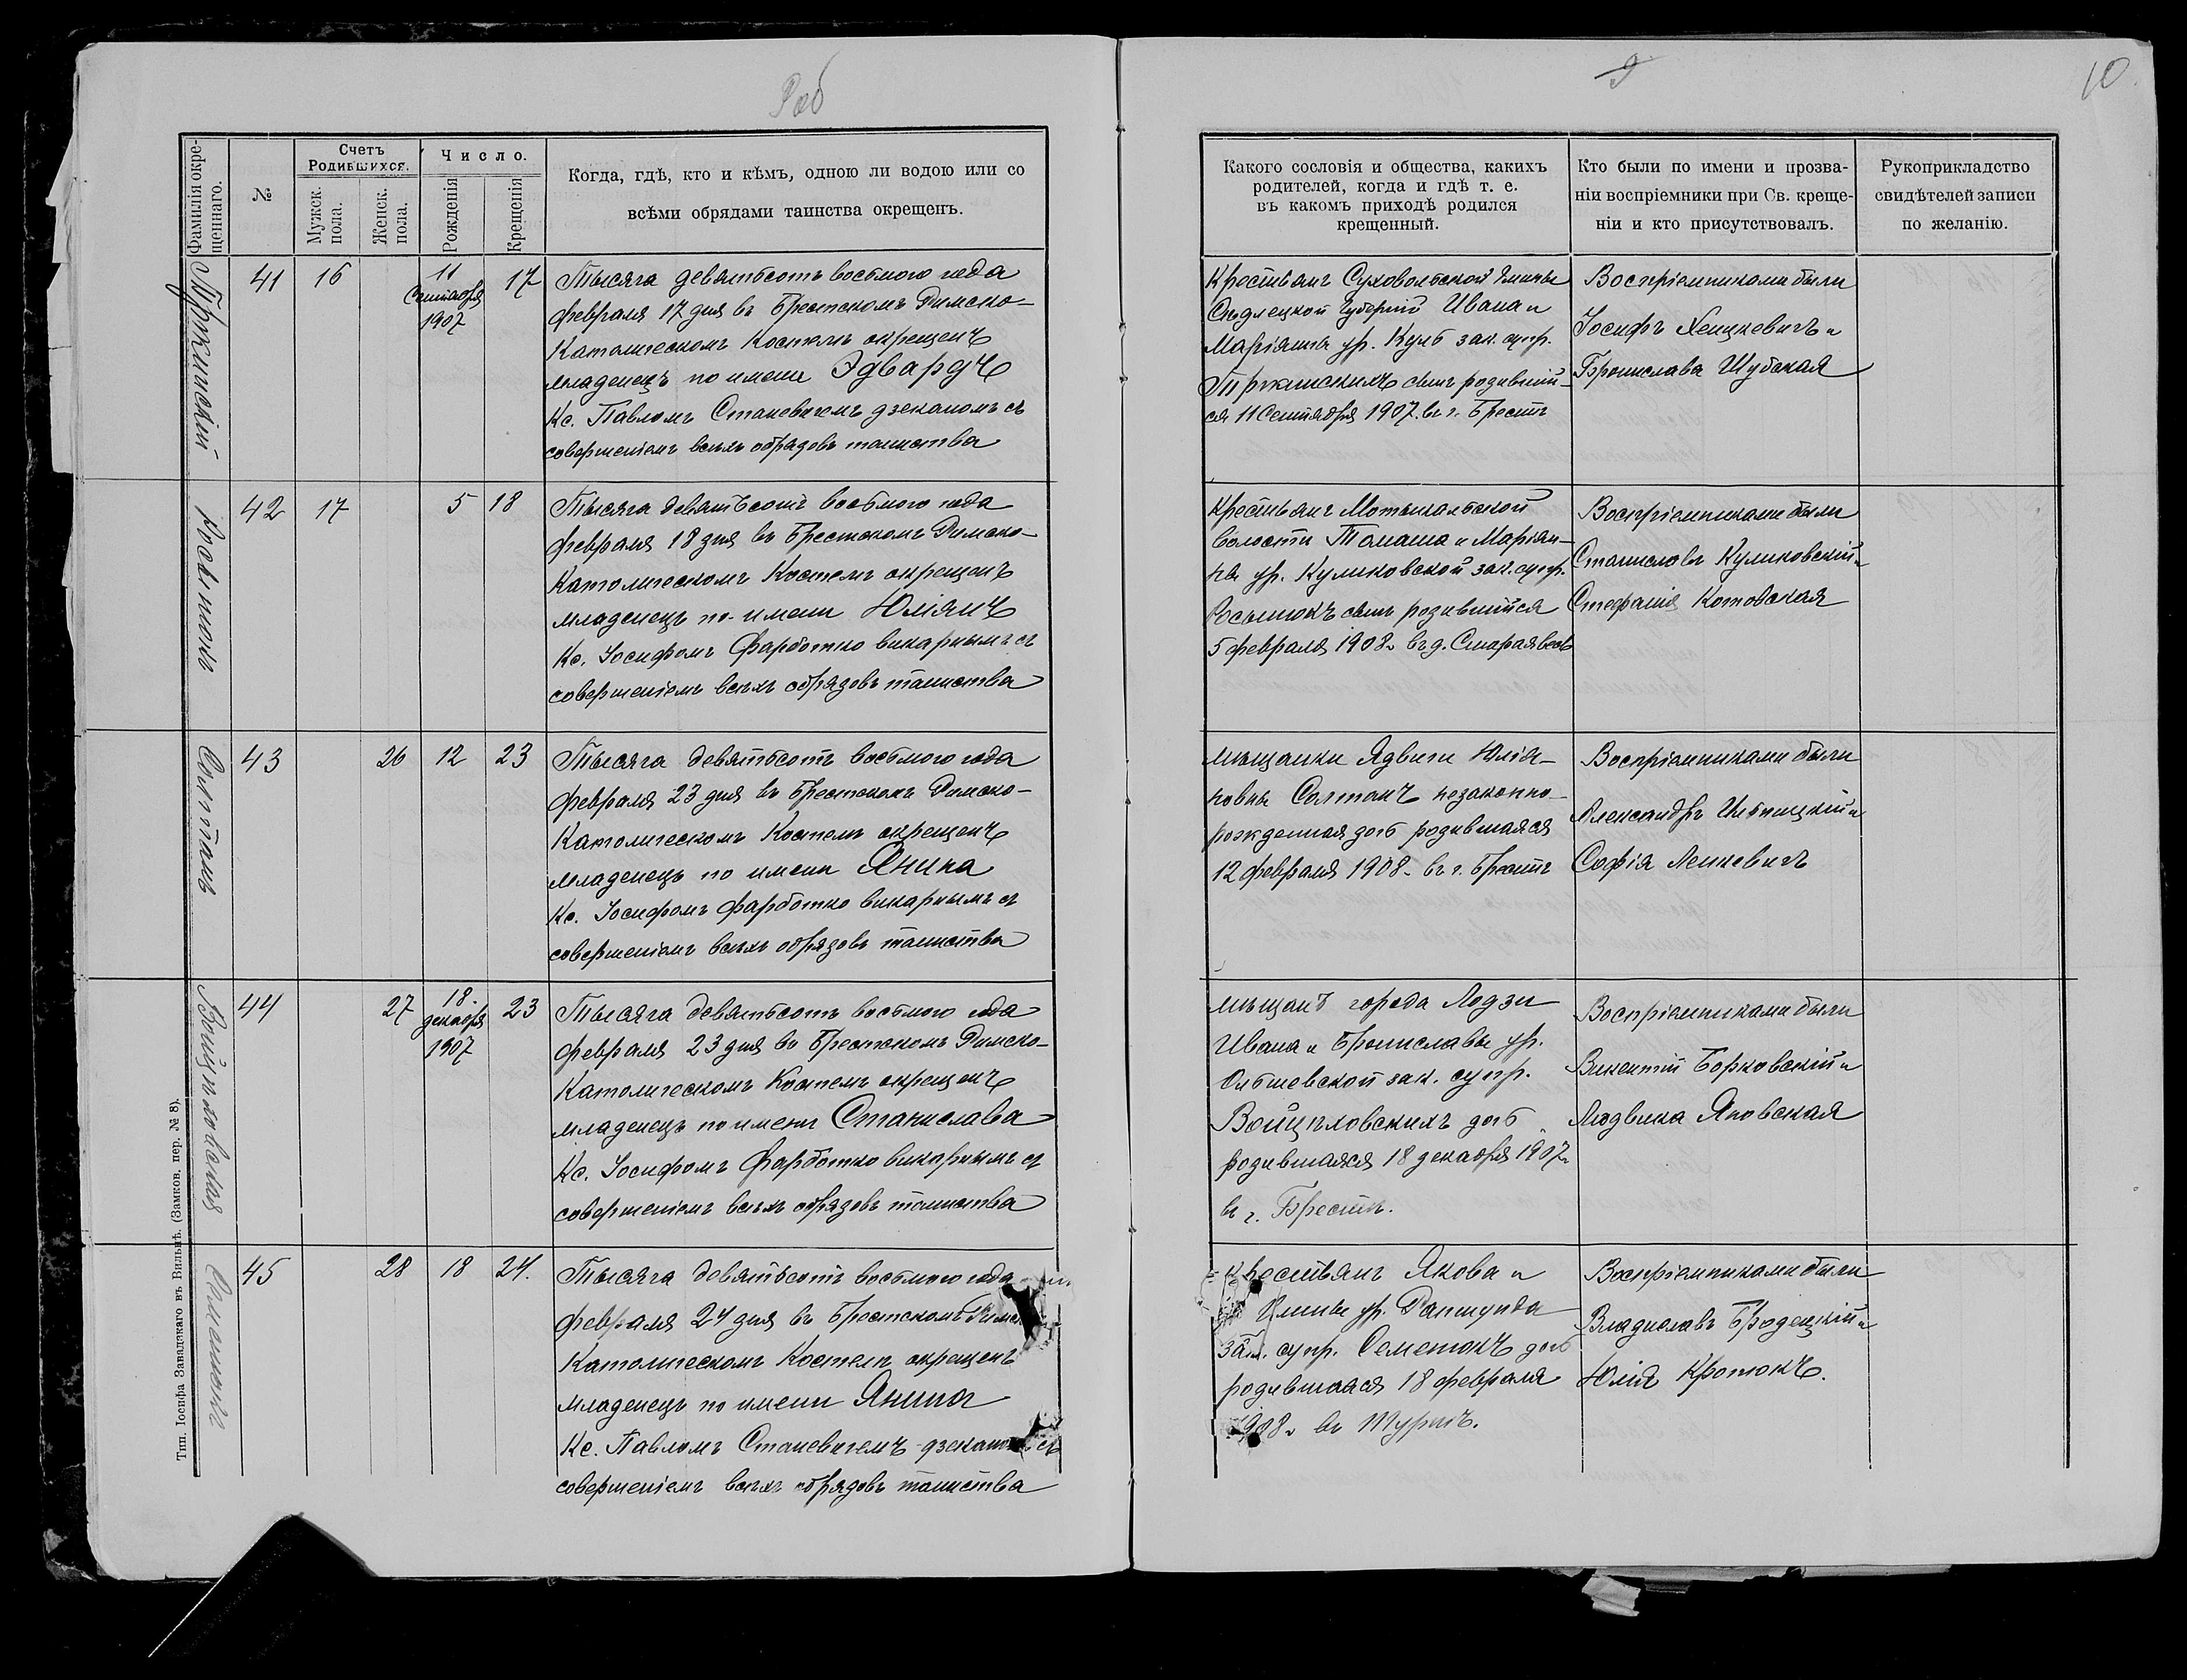 9
10
Фамилія окре-
щеннаго.
№
Счетъ
Родившихся.
Мужск.
пола.
Женск.
пола.
Число.
Рожденія
Крещенія
Когда, гдѣ, кто и кѣмъ, одною ли водою или со
всѣми обрядами таинства окрещенъ.
Какого сословія и общества, какихъ
родителей, когда и гдѣ т. е.
въ какомъ приходѣ родился
крещенный.
Кто были по имени и прозва-
ніи воспріемники при Св. креще-
ніи и кто присутствовалъ.
Рукоприкладство
свидѣтелей записи
по желанію.
41
16
11
Сентября
1907
17
Тысяча девятьсотъ восьмого года
февраля 17 дня въ Брестскомъ Римско-
Католическомъ Костелѣ окрещенъ
младенецъ по имени Эдвардъ
Кс. Павломъ Станевичемъ дзеканомъ съ
совершеніемъ всѣхъ обрядовъ таинства
Крестьянъ Суховольской гмины
Сѣдлецкой Губерніи Ивана и
Маріянны ур. Куль зак. супр.
сынъ родивший-
ся 11 Сентября 1907 въ г. Брестѣ
Воспріемниками были
Іосифъ и
Бронислава Шубская
42
17
5
18
Тысяча девятьсотъ восьмого года
февраля 18 дня въ Брестскомъ Римско-
Католическомъ Костелѣ окрещенъ
младенецъ по имени Юліянъ
Кс. Іосифомъ Фарботко викарнымъ съ
совершеніемъ всѣхъ обрядовъ таинства
Крестьянъ Мотыкальской
волости Томаша и Маріян-
ны ур. Куликовской зак. супр.
сынъ родившійся
5 февраля 1908 г. въ д. Старая весь
Воспріемниками были
Станиславъ Куликовскій и
Стефанія Котовская
Солтанъ
43
26
12
23
Тысяча девятьсотъ восьмого года
февраля 23 дня въ Брестскомъ Римско-
Католическомъ Костелѣ окрещенъ
младенецъ по имени Янина
Кс. Іосифомъ Фарботко викарнымъ съ
совершеніемъ всѣхъ обрядовъ таинства
мѣщанки Ядвиги Юлія-
новны Солтанъ незаконно-
рожденная дочь родившаяся
12 февраля 1908 г. въ г. Брестѣ
Воспріемниками были
Александръ Ильницкій и
Софія Ленкевичъ
Войцѣховская
44
27
18
декабря
1907
23
Тысяча девятьсотъ восьмого года
февраля 23 дня въ Брестскомъ Римско-
Католическомъ Костелѣ окрещенъ
младенецъ по имени Станислава
Кс. Іосифомъ Фарботко викарнымъ съ
совершеніемъ всѣхъ обрядовъ таинства
мѣщанъ города Лодзи
Ивана и Брониславы ур.
Ольшевской зак. супр.
Войцѣховскихъ дочь
родившаяся 18 декабря 1907 г.
въ г. Брестѣ.
Воспріемниками были
Викентій Борковскій и
Людвика Яновская
Семенюкъ
45
28
18
24.
Тысяча девятьсотъ восьмого года
февраля 24 дня въ Брестскомъ Римско
Католическомъ Костелѣ окрещенъ
младенецъ по имени Янина
Кс. Павломъ Станевичемъ дзеканомъ съ
совершеніемъ всѣхъ обрядовъ таинства
Крестьянъ Якова и
ур.
зак. супр. Семенюкъ дочь
родившаяся 18 февраля
1908 г. въ Турнѣ.
Воспріемниками были
Владиславъ Бродецкій и
Юлія Кротюкъ.
Тип. Іосифа Завадзкаго въ Вильнѣ. (Замков. пер. № 8).